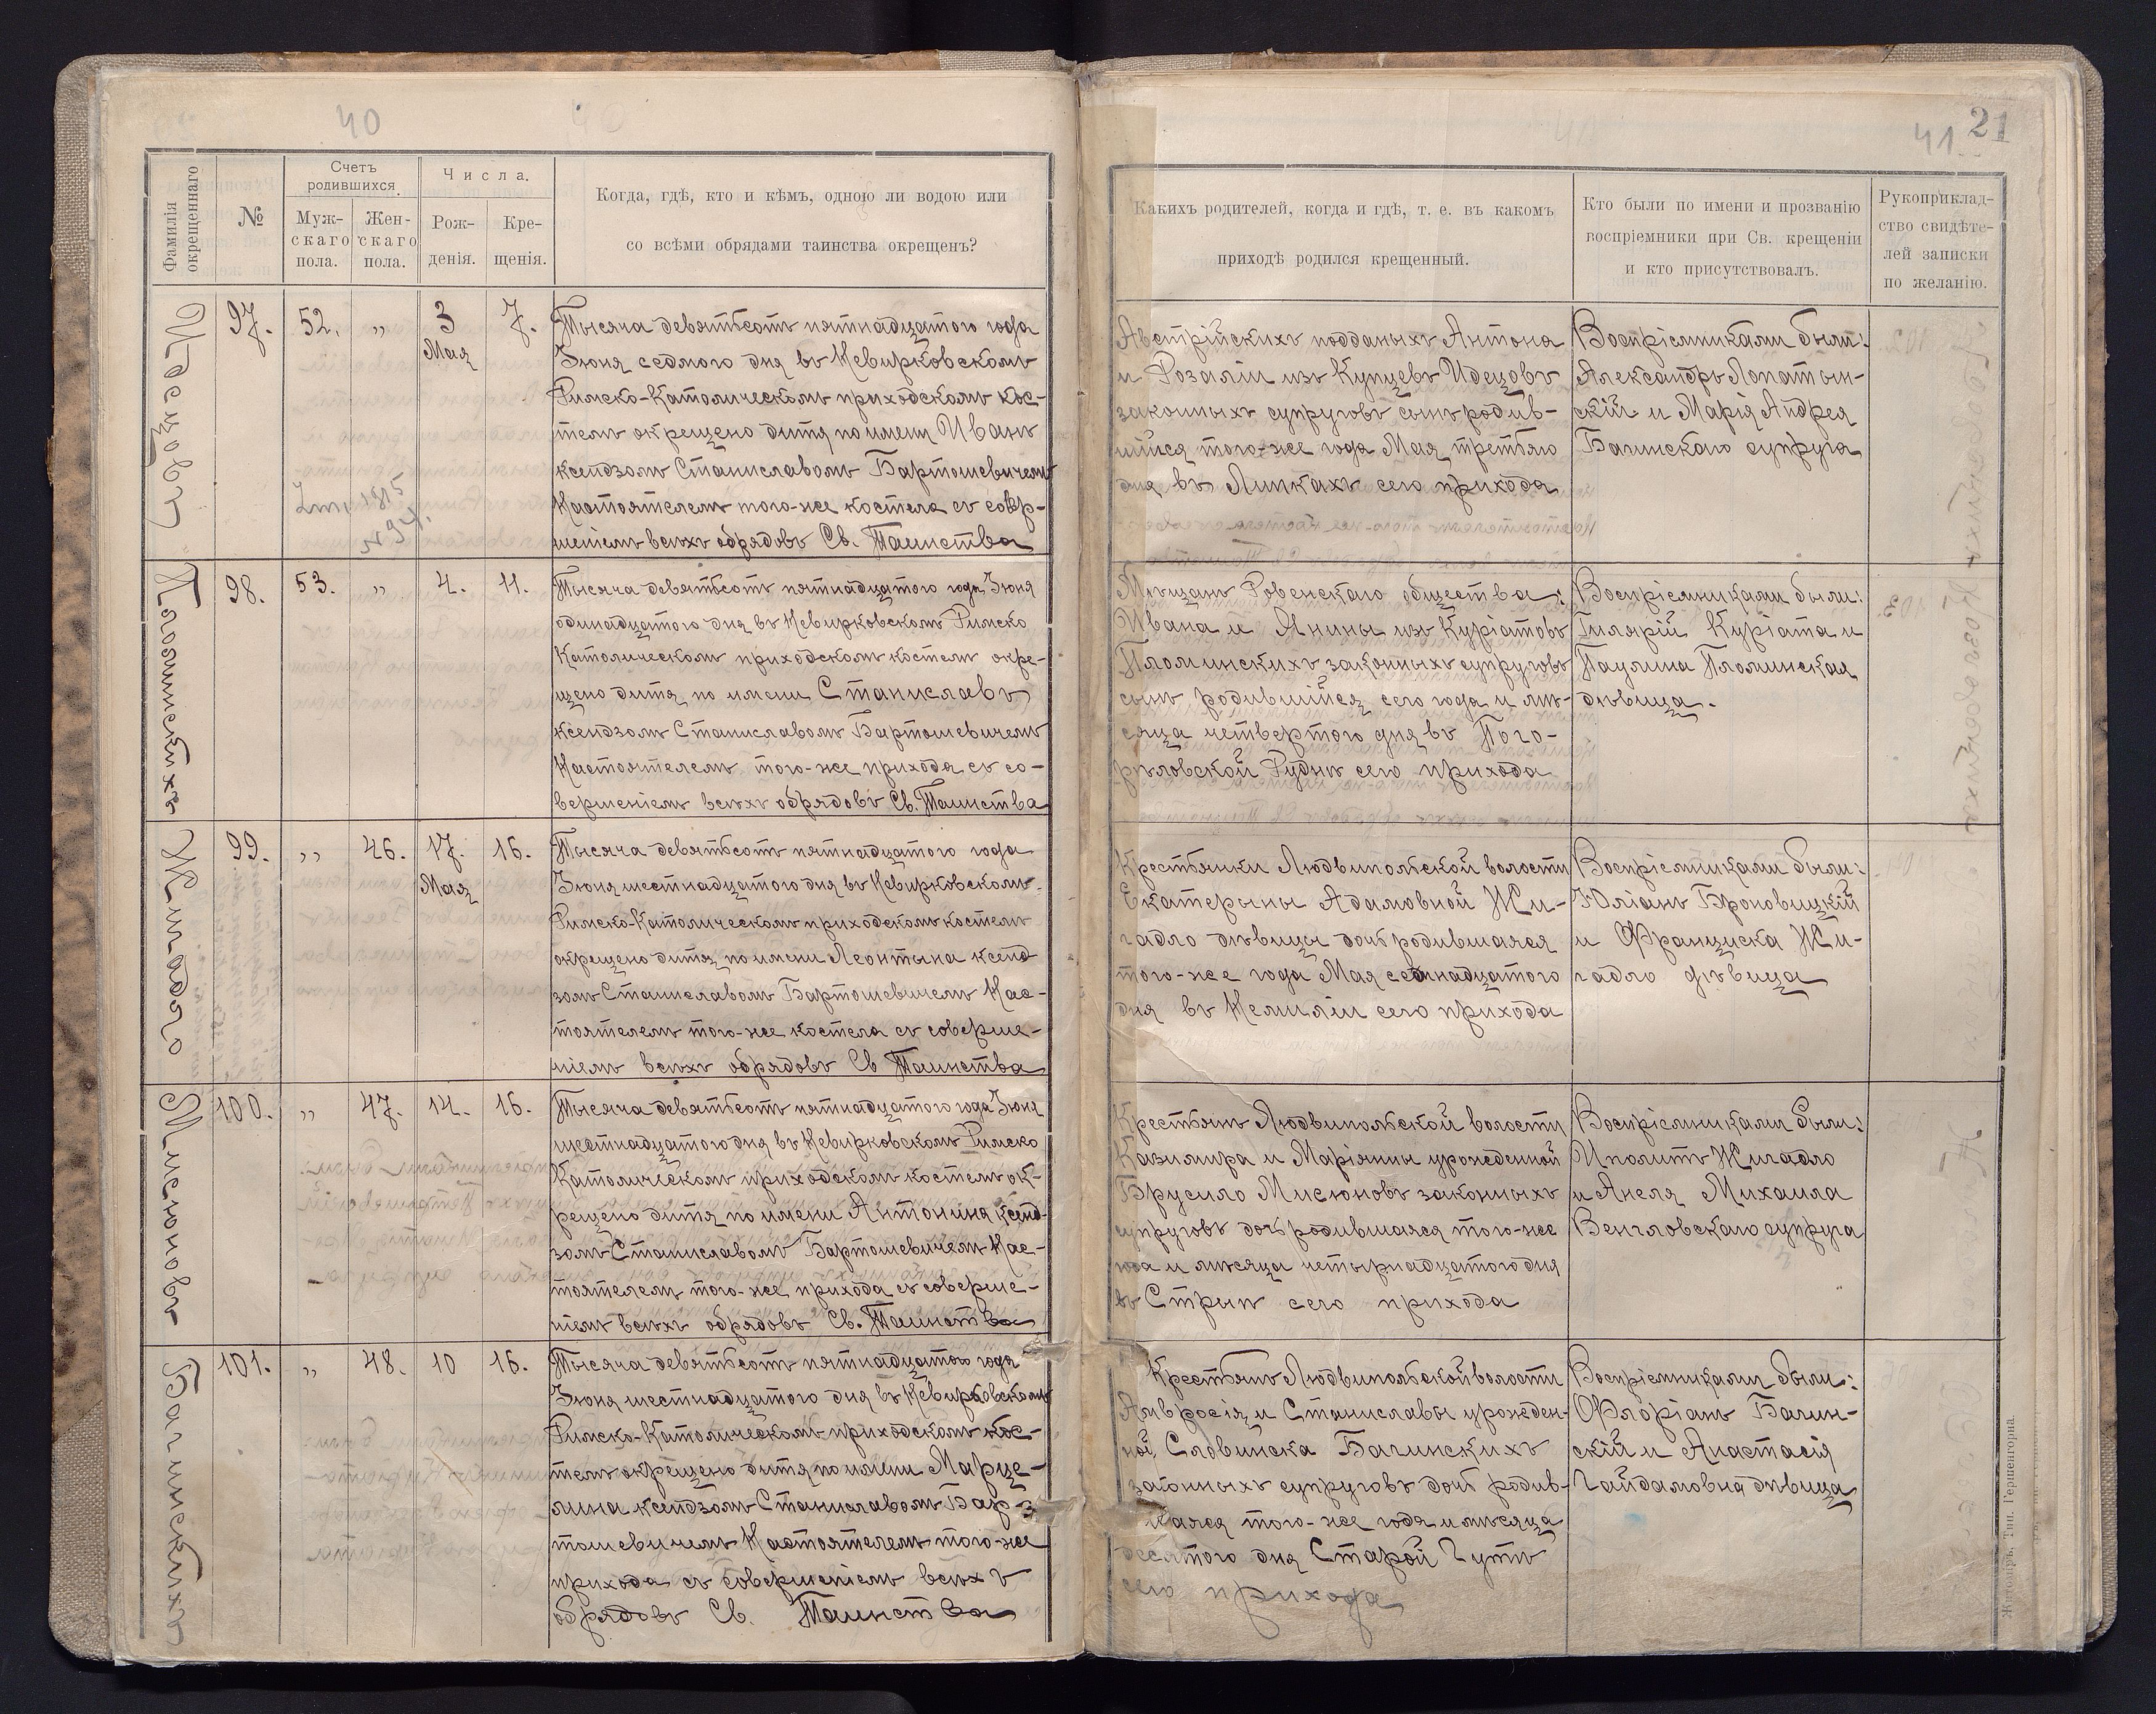 40
41
21
Фамилія окрещеннаго
№
Счетъ родившихся.
Муж-
скаго
пола.
Жен-
скаго
пола.
Числа.
Рож-
денія.
Кре-
щенія.
Когда, гдѣ, кто и кѣмъ, одною ли водою или
со всѣми обрядами таинства окрещенъ?
Какихъ родителей, когда и гдѣ, т. е. въ какомъ
приходѣ родился крещенный.
Кто были по имени и прозванію
воспріемники при Св. крещеніи
и кто присутствовалъ.
Рукоприклад-
ство свидѣте-
лей записки
по желанію.
97.
52.
„
3
Мая
7.
Тысяча девятьсотъ пятнадцатого года
Іюня седмого дня въ Невирковскомъ
Римско-Католическомъ приходскомъ кос-
телѣ окрещено дитя по имени Иванъ
ксендзомъ Станиславомъ Бартошевичемъ
Настоятелемъ того-же костела съ совер-
шеніемъ всѣхъ обрядовъ Св. Таинства
Австрійскихъ подданыхъ Антона
и Розаліи изъ Купцевъ Идецовъ
законныхъ супруговъ сынъ родив-
шійся того-же года Мая третьяго
дня въ Липкахъ сего прихода
Воспріемниками были:
Александръ Лопатын-
скій и Марія Андрея
Багинскаго супруга
Пломинскихъ
98.
53.
„
4.
11.
Тысяча девятьсотъ пятнадцатого года Іюня
одинадцатого дня въ Невирковскомъ Римско
Католическомъ приходскомъ костелѣ окре-
щено дитя по имени Станиславъ
ксендзомъ Станиславомъ Бартошевичемъ
Настоятелемъ того-же прихода съ со-
вершеніемъ всѣхъ обрядовъ Св. Таинства
Мѣщанъ Ровенскаго общества:
Ивана и Янины изъ Куріатовъ
Пломинскихъ законныхъ супруговъ
сынъ родившійся сего года и мѣ-
сяца четвертого дня въ Пого-
рѣловской Руднѣ сего прихода
Воспріемниками были:
Гилярій Куріата и
Паулина Пломинская
дѣвица.
Жигадло
99.
„
46.
17.
Мая
16.
Тысяча девятьсотъ пятнадцатого года
Іюня шестнадцатого дня въ Невирковскомъ
Римско-Католическомъ приходскомъ костелѣ
окрещено дитя по имени Леонтына ксенд
зомъ Станиславомъ Бартошевичемъ Нас-
тоятелемъ того-же костела съ соверше-
ніемъ всѣхъ обрядовъ Св Таинства
Крестьянки Людвипольской волости
Екатерыны Адамовной Жи-
гадло дѣвицы дочь родившаяся
того-же года Мая семнадцатого
дня въ Немиліи сего прихода
Воспріемниками были:
Юліанъ Броновицкій
и Франциска Жи-
гадло дѣвица
Мисюновъ
100.
„
47.
14.
16.
Тысяча девятьсотъ пятнадцатого года Іюня
шестнадцатого дня въ Невирковскомъ Римско
Католическомъ приходскомъ костелѣ ок-
рещено дитя по имени Антонина ксенд-
зомъ Станиславомъ Бартошевичемъ Нас-
тоятелемъ того-же прихода съ соверше-
ніемъ всѣхъ обрядовъ Св. Таинства
Крестьянъ Людвипольской волости
Казимира и Маріянны урожденной
Брусило Мисюновъ законныхъ
супруговъ дочь родившаяся того-же
года и мѣсяца четырнадцатого дня
въ Стрыѣ сего прихода
Воспріемниками были:
Иполитъ Жигадло
и Анеля Михаила
Венгловскаго супруга
Багинскихъ
101.
„
48.
10
16.
Тысяча девятьсотъ пятнадцатого года
Іюня шестнадцатого дня въ Невирковскомъ
Римско-Католическомъ приходскомъ кос-
телѣ окрещено дитя по имени Марце-
лина ксендзомъ Станиславомъ Бар-
тошевичемъ Настоятелемъ того-же
прихода съ совершеніемъ всѣхъ
обрядовъ Св. Таинства
Крестьянъ Людвипольской волости
Амвросія и Станиславы урожден-
ной Словинска Багинскихъ
законныхъ супруговъ дочь родив-
шаяся того-же года и мѣсяца
десятого дня Старой Гутѣ
сего прихода
Воспріемниками были:
Флоріанъ Багин-
скій и Анастасія
Гайдамовна дѣвица
Житомиръ, Тип. Гершенгорна.